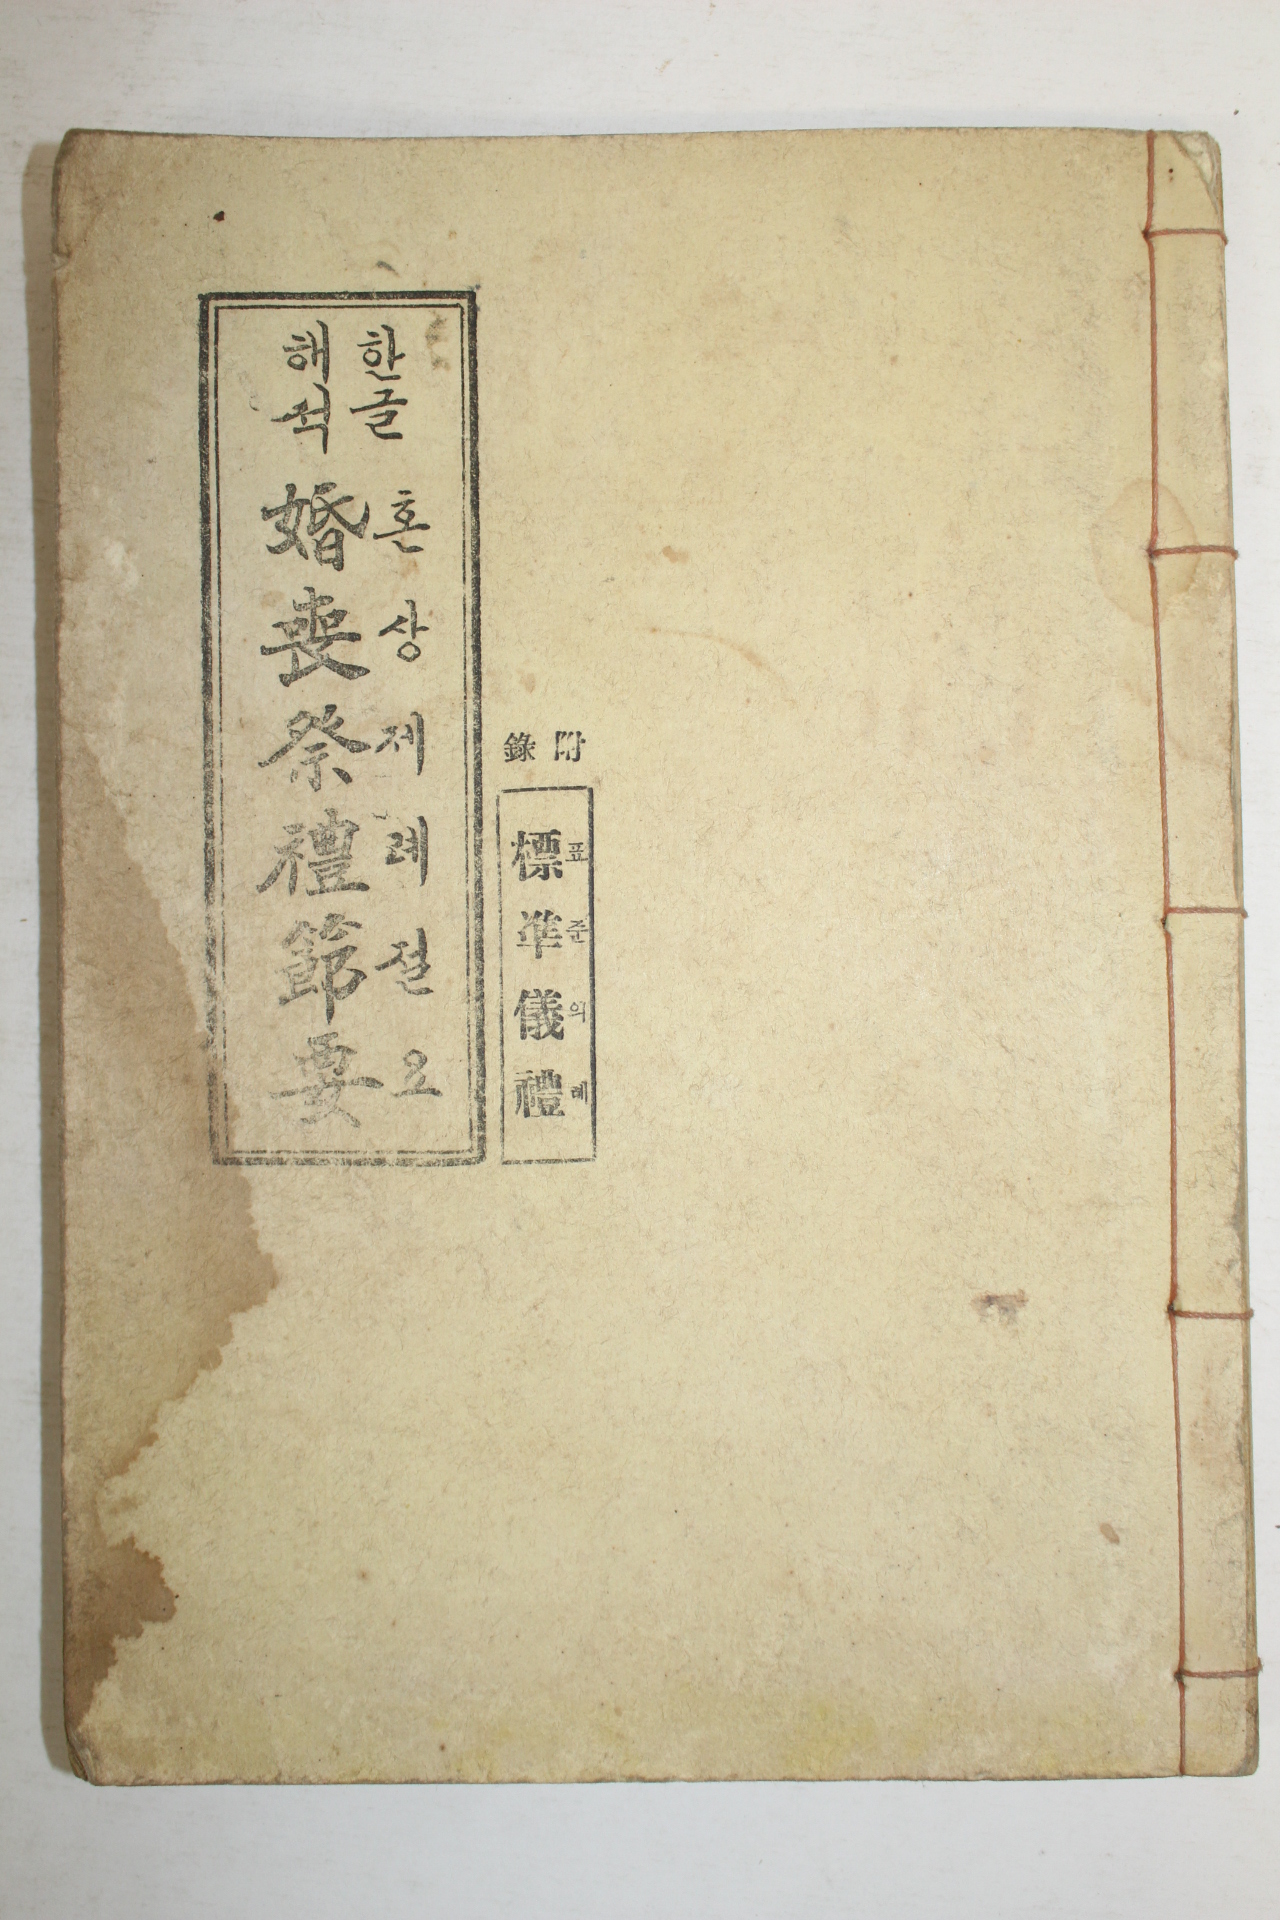 한글
해석
혼상제례절요
婚喪祭禮節要
附錄
표준의례
標準儀禮